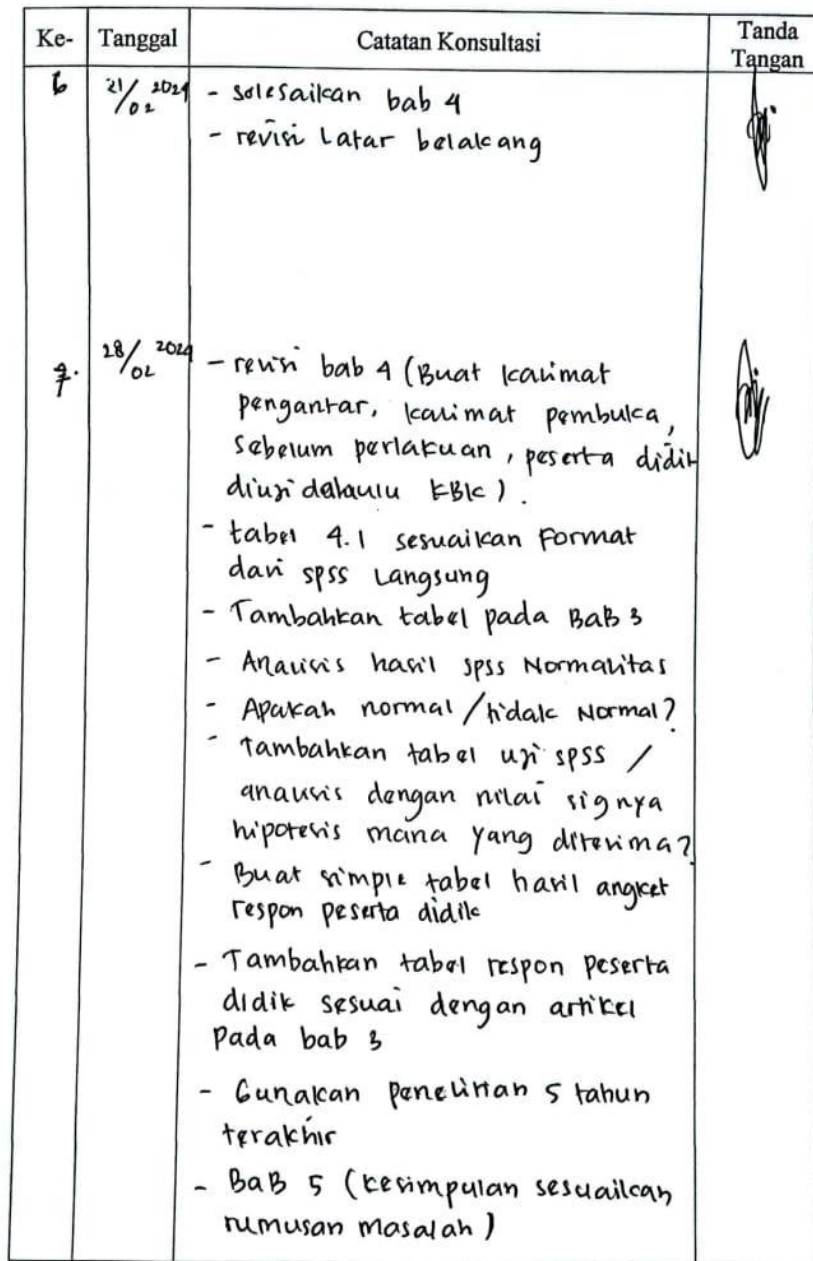 Ke- Tanggal Catatan Konsultasi Tanda Tangan
6 21/02 2024 - Selesaikan bab 4
- revisi Latar belakang
7. 28/02 2024 - revisi bab 4 (Buat kalimat
pengantar, kalimat pembuka,
Sebelum perlakuan, peserta didik
diuji dahulu KBK).
- tabel 4.1 sesuaikan Format
dari SPSS Langsung
- Tambahkan tabel pada BaB 3
- Analisis hasil SPSS Normalitas
- Apakah normal / tidak Normal?
- Tambahkan tabel uji SPSS /
analisis dengan nilai signya
hipotesis mana yang diterima?
- Buat simple tabel hasil angket
respon peserta didik
- Tambahkan tabel respon peserta
didik sesuai dengan artikel
Pada bab 3
- Gunakan penelitian 5 tahun
terakhir
- BaB 5 (kesimpulan sesuaikan
rumusan masalah)